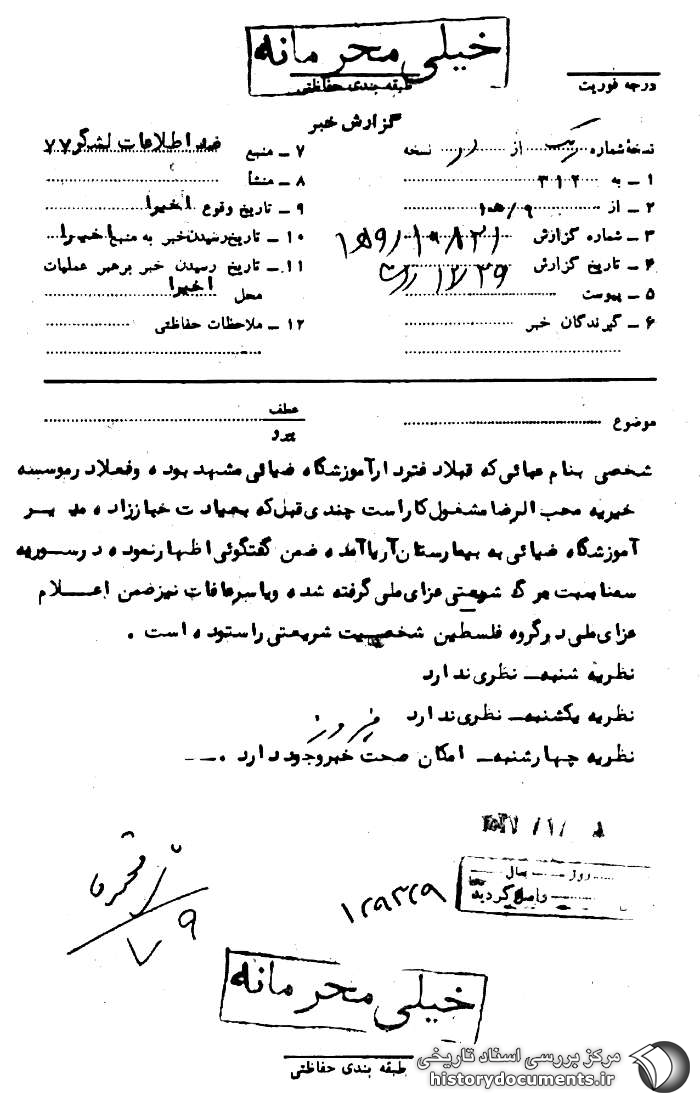 خیلی محرمانه
طبقه بندی حفاظتی
درجه فوریت
گزارش خبر
نسخهٔ شماره یک از نسخه
۱ ـ به ۳۱۲
۲ ـ از ۹/ﻫ۱
۳ ـ شماره گزارش
۴ ـ تاریخ گزارش
۵ ـ پیوست
۶ ـ گیرندگان خبر
۷ ـ منبع ضد اطلاعات لشگر ۷۷
۸ ـ منشأ
۹ ـ تاریخ وقوع اخیرا
۱۰ ـ تاریخ رسیدن خبر به منبع اخیرا
۱۱ ـ تاریخ رسیدن خبر برهبر عملیات
محل اخیرا
۱۲ ـ ملاحظات حفاظتی
موضوع
عطف
پیرو
شخصی بنام که قبلا دفتردار آموزشگاه ضیائی مشهد بوده و فعلا در موسسه
خیریه محب الرضا مشغول کار است چندی قبل که بعیادت خباززاده مدیر
آموزشگاه ضیائی به بیمارستان آریا آمده ضمن گفتگوئی اظهار نموده در سوریه
بمناسبت مرگ شریعتی عزای ملی گرفته شده و یاسر عافات نیز ضمن اعلام
عزای ملی در گروه فلسطین شخصیت شریعتی را ستوده است .
نظریه شنبه ـ نظری ندارد
نظریه یکشنبه ـ نظری ندارد
نظریه چهارشنبه ـ امکان صحت خبر وجود دارد .
روز سال
واصل گردید
۱۲۹۳۲۹
۷/۹
خیلی محرمانه
طبقه بندی حفاظتی
مرکز بررسی اسناد تاریخی
historydocuments.ir